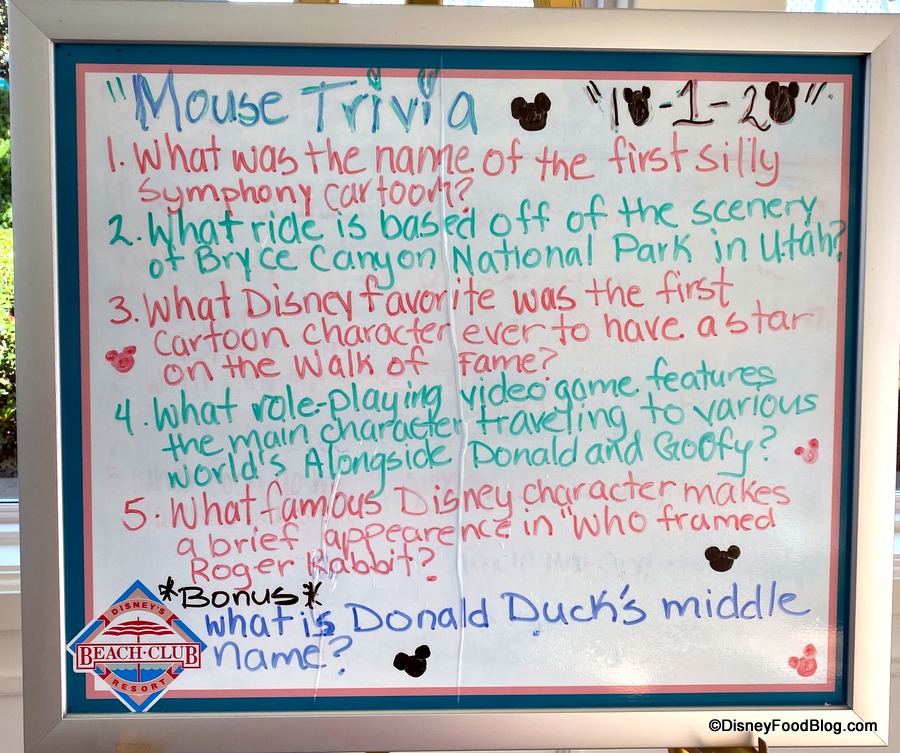 "Mouse Trivia "10-1-20"
1. What was the name of the first silly
symphony cartoon?
2. What ride is based off of the scenery
of Bryce Canyon National Park in Utah?
3. What Disney favorite was the first
cartoon character ever to have a star
on the Walk of Fame?
4. What role-playing video game features
the main character traveling to various
world's Alongside Donald and Goofy?
5. What famous Disney character makes
a brief appearence in "who framed
Roger Rabbit?
*Bonus*
what is Donald Duck's middle
name?
DISNEY'S
BEACH·CLUB
RESORT
©DisneyFoodBlog.com